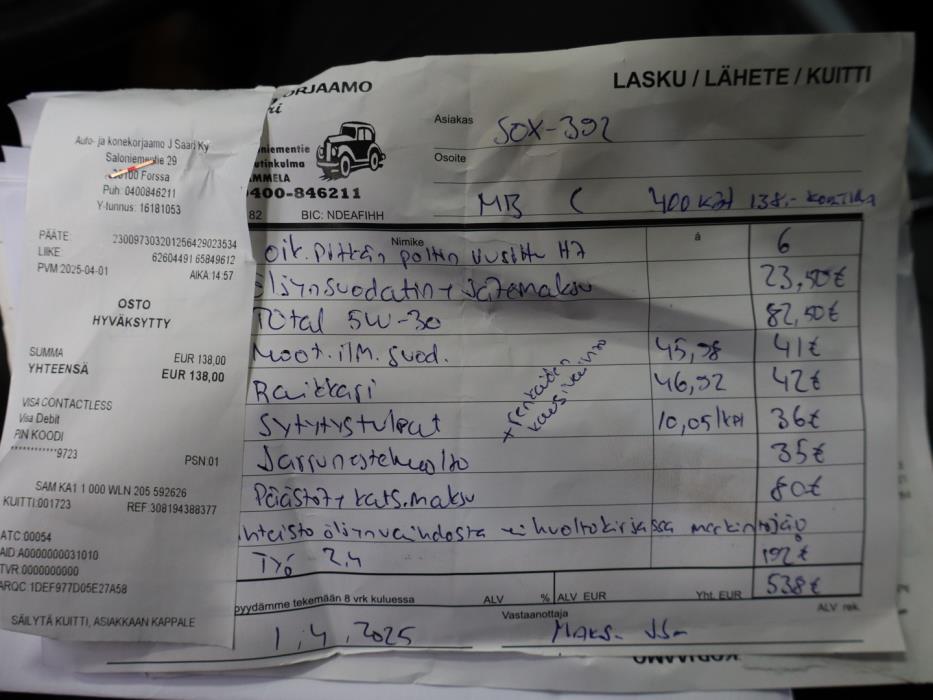 Auto- ja konekorjaamo J Saari Ky
Saloniementie 29
30100 Forssa
Puh: 0400846211
Y-tunnus: 16181053
PÄÄTE: 2300973032012564290235​34
LIIKE: 62604491 65849612
PVM 2025-04-01 AIKA 14:57
OSTO
HYVÄKSYTTY
SUMMA EUR 138,00
YHTEENSÄ EUR 138,00
VISA CONTACTLESS
Visa Debit
PIN KOODI
************9723 PSN:01
SAM KA1 1 000 WLN 205 592626
KUITTI:001723 REF:308194388377
ATC: 00054
AID:A0000000031010
TVR:0000000000
ARQC:1DEF977D05E27A58
SÄILYTÄ KUITTI, ASIAKKAAN KAPPALE
ORJAAMO
LASKU / LÄHETE / KUITTI
niementie
utinkulma
MMELA
400-846211
82 BIC: NDEAFIHH
Asiakas SOX-392
Osoite
MB C 400 kät 138,- kortilla
Nimike á
oik. pitkän poltin uusittu H7 6
öljynsuodatin + jätemaksu 23,50 €
Total 5W-30 82,50 €
Moot. ilm. suod. 45,98 41 €
Raikkasi 46,92 42 €
Sytytystulpat 10,05/kpl 36 €
+ renkaiden kausivaihto
Jarrunestehuolto 35 €
Päästöt + kats. maksu 80 €
ihteisto öljynvaihdosta ei huoltokirjassa merkintöjä 0
Työ 2,4 192 €
538 €
pyydämme tekemään 8 vrk kuluessa ALV % ALV EUR Yht. EUR
ALV rek.
Vastaanottaja
1.4.2025 Maks. JS-
KORJAAMO